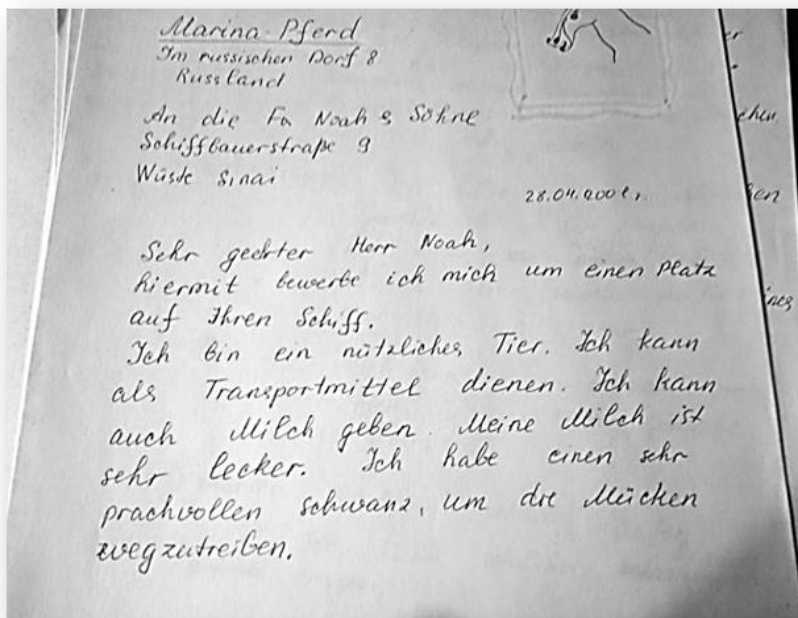 Marina Pferd
Im russischen Dorf 8
Russland
An die Fa Noah & Söhne
Schiffbauerstraße 9
Wüste Sinai
Sehr geehrter Herr Noah,
hiermit bewerbe ich mich um einen Platz
auf Ihren Schiff.
Ich bin ein nützliches Tier. Ich kann
als Transportmittel dienen. Ich kann
auch Milch geben. Meine Milch ist
sehr lecker. Ich habe einen sehr
prachvollen schwanz, um die Mücken
wegzutreiben.